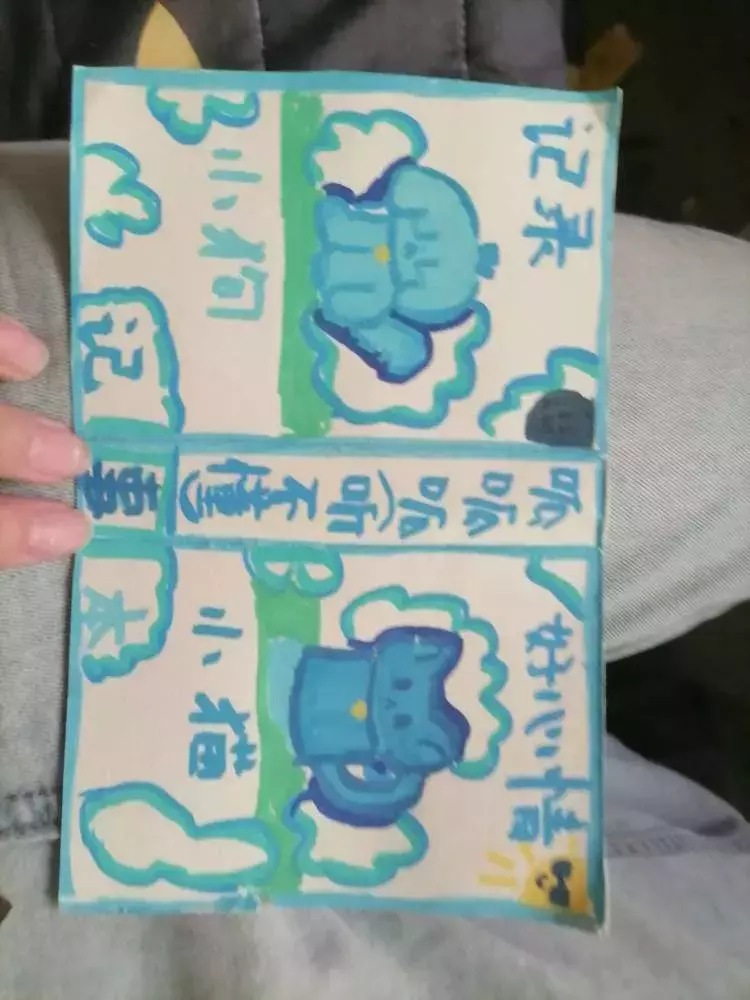 记录
好心情
呱呱呱(听不懂)
小狗
小猫
记事本